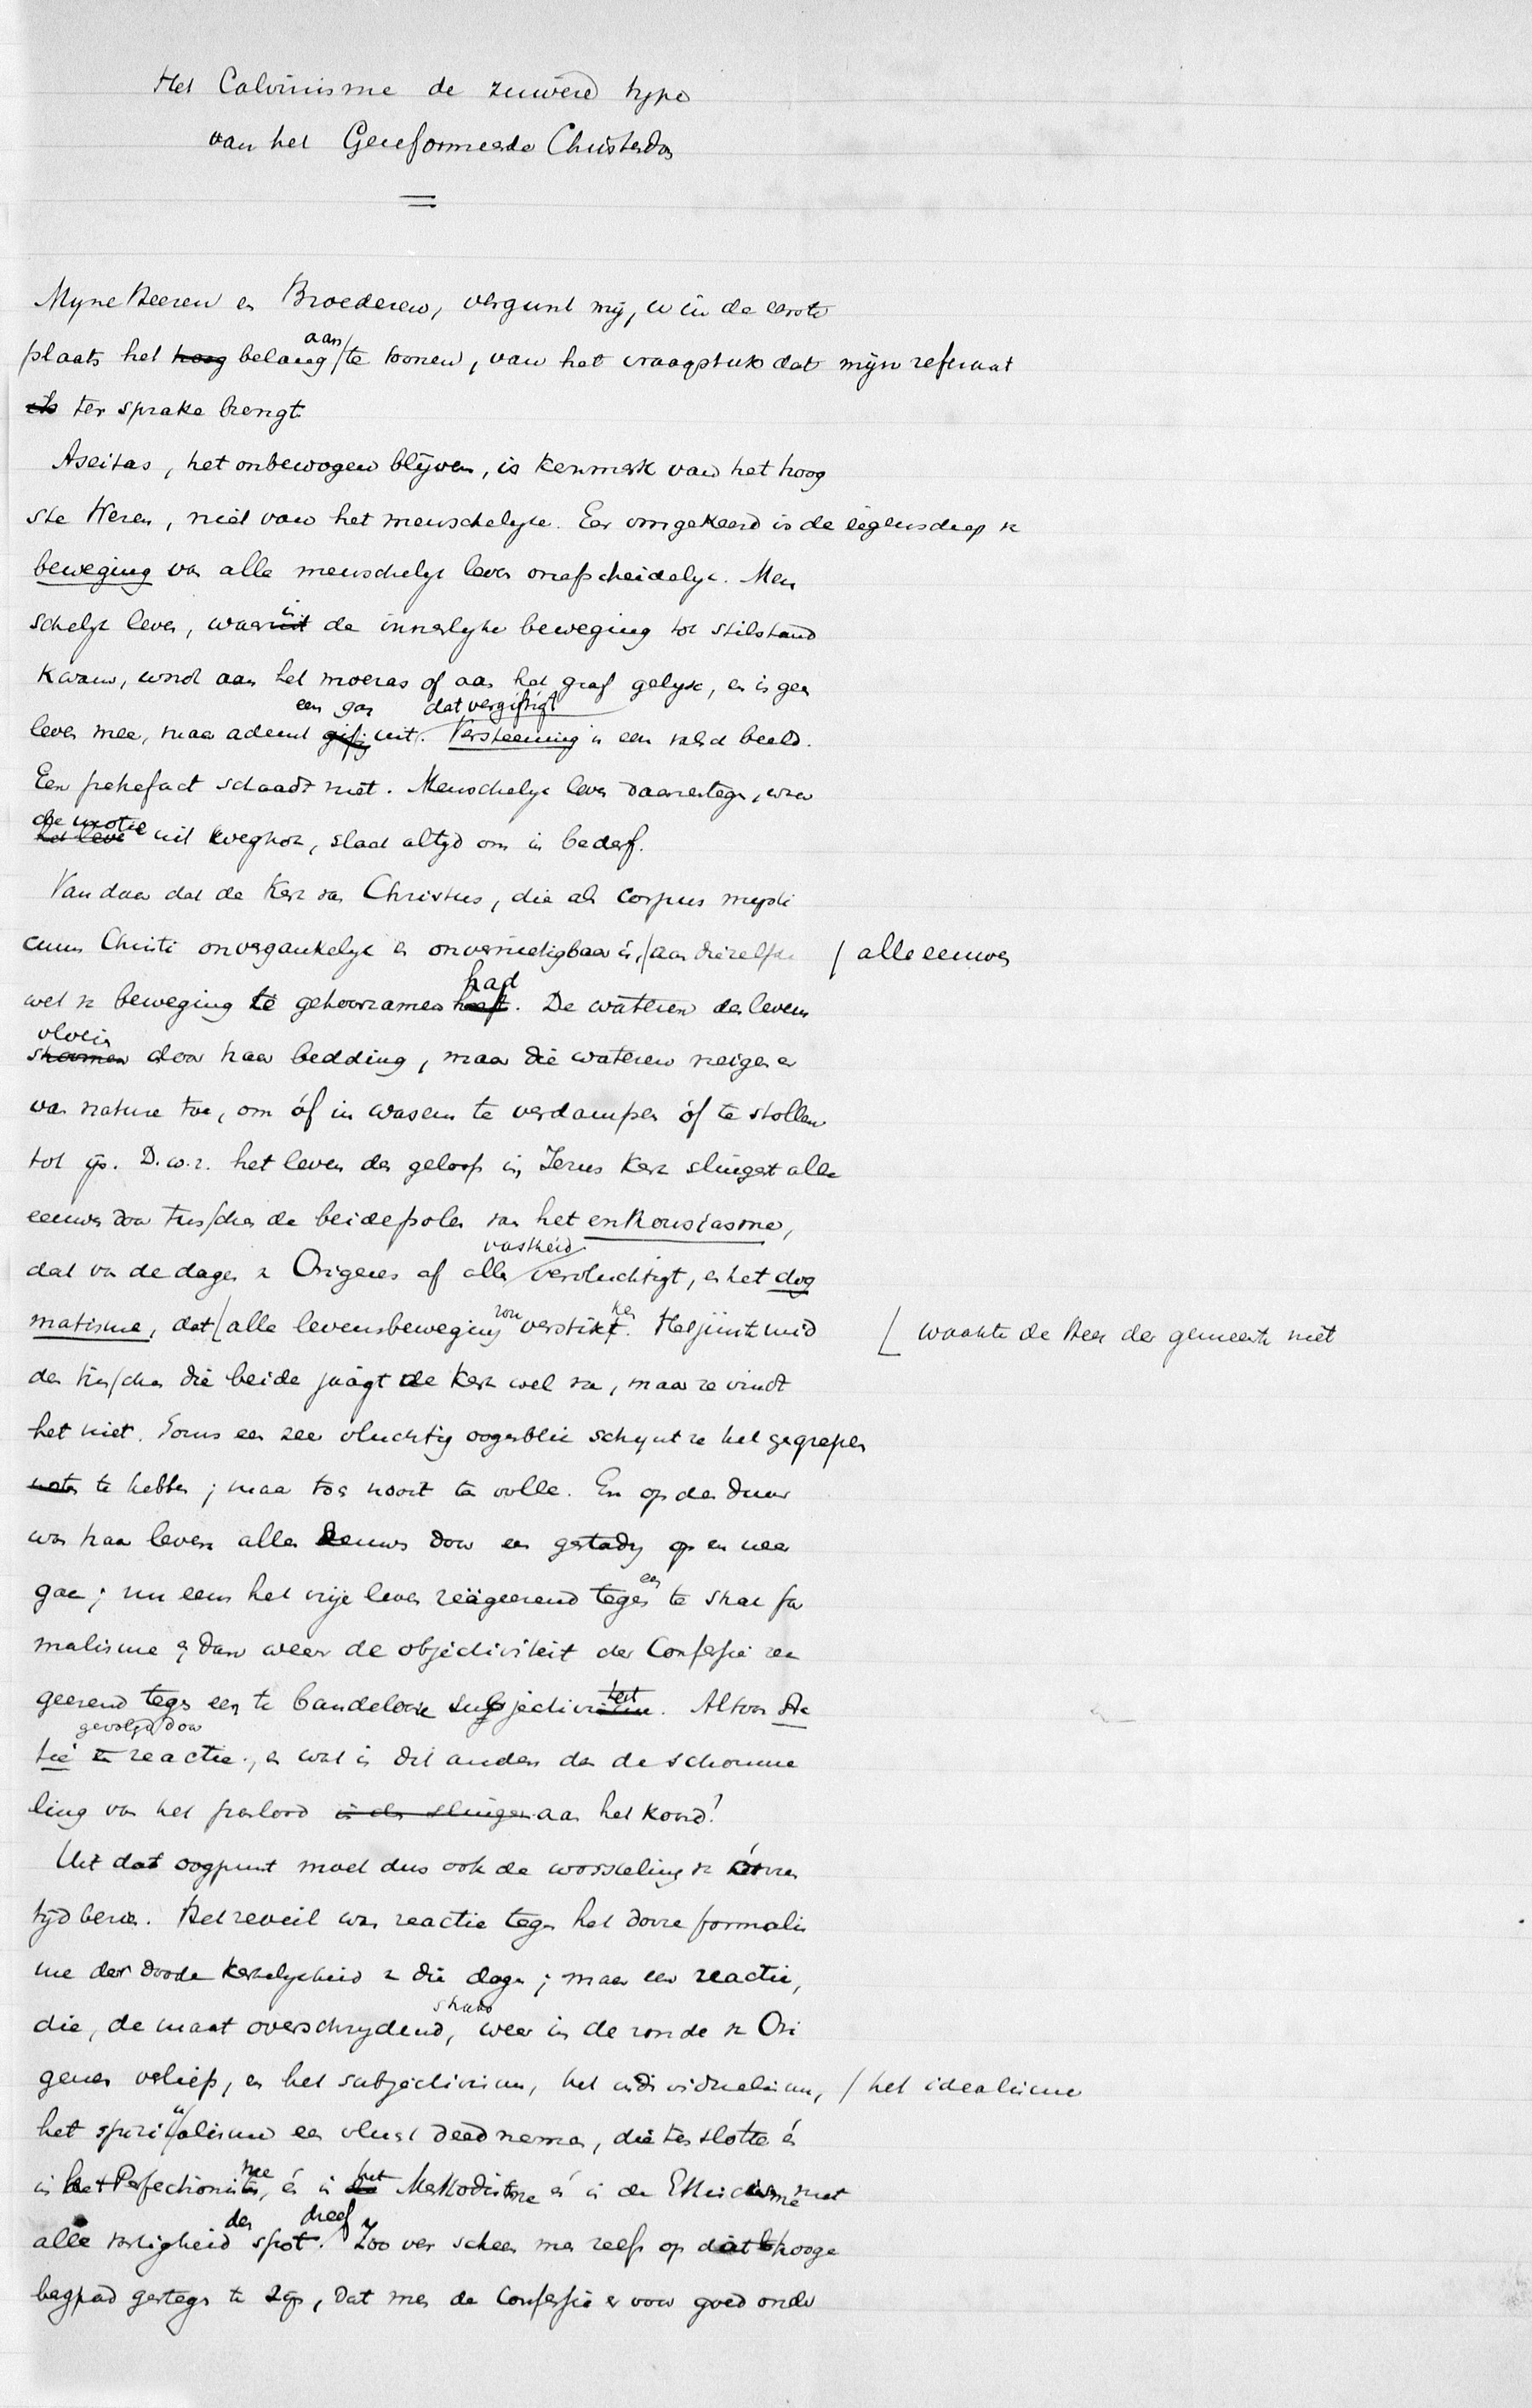 Het Calvinisme de zuivere type
van het Gereformeerde Christendom
Mijne Heeren en Broederen, vergunt mij, u in de eerste
plaats het hoog belang aan te toonen, van het vraagstuk dat mijn referaat
ter sprake brengt
Aseitas, het onbewogen blijven, is kenmerk van het hoog
ste Wezen, niet van het menschelijke. Eer omgekeerd is de eigenschap v
beweging van alle menschelijk leven onafscheidelijk. Men
schelijk leven, waarin de innerlijke beweging tot stilstand
kwam, wordt aan het moeras of aan het graf gelijk, en is geen
leven meer, maar ademt een gas uit dat vergiftigt. Versteening is een beeld.
Een petrefact schaadt niet. Menschelijk leven daarentegen, waar
de motie uit wegtrok, slaat altijd om in bederf.
Vandaar dat de Kerk van Christus, die als corpus mysti
cum Christi onvergankelijk en onvernietigbaar is, / aan diezelfde / alle eeuwen
wet v beweging te gehoorzamen had. De wateren des levens
vloeien door haar bedding, maar die wateren neigen er
van nature toe, om óf in wasem te verdampen óf te stollen
tot ijs. D.w.z. het leven des geloofs in Jezus Kerk slingert alle
eeuwen door tusschen de beide polen van het enthousiasme,
dat van de dagen v Origenes af alle vastheid vervluchtigt, en het dog
matisme, dat [ alle levensbeweging zou verstikken. Het juiste mid [ waakte de Heer der gemeente niet
den tusschen die beide jaagt de Kerk wel na, maar ze vindt
het niet. Soms een zeer vluchtig oogenblik schijnt ze het gegrepen
te hebben; maar toch nooit ten volle. En op den duur
was haar leven alle eeuwen door een gestadig op en neer
gaan; nu eens het vrije leven reageerend tegen een te strak for
malisme en dan weer de objectiviteit der Confessie rea
geerend tegen een te bandelooze subjectiviteit. Altoos Ac
tie gevolgd door reactie, en wat is dit anders dan de schomme
ling van het paslood aan het koord?
Uit dat oogpunt moet dus ook de worsteling v onzen
tijd bezien. Het reveil was reactie tegen het dorre formalis
me der doode kerkelijkheid v die dagen; maar een reactie,
die, de maat overschrijdend, straks weer in de zonde v Ori
genes verliep, en het subjectivisme, het individualisme, / het idealisme
het spiritualisme een vlucht deed nemen, die ten slotte én
in het Perfectionisme, én in het Methodisme én in de Ethicisme met
alle vastigheid den spot dreef. Zoo ver scheen men zelfs op dat hooge
bergpad gestegen te zijn, dat men de Confessie er voor goed onder